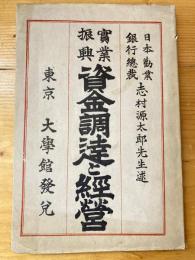 日本勸業
銀行總裁 志村源太郎先生述
實業
振興 資金調達と經營
東京 大學館發兌